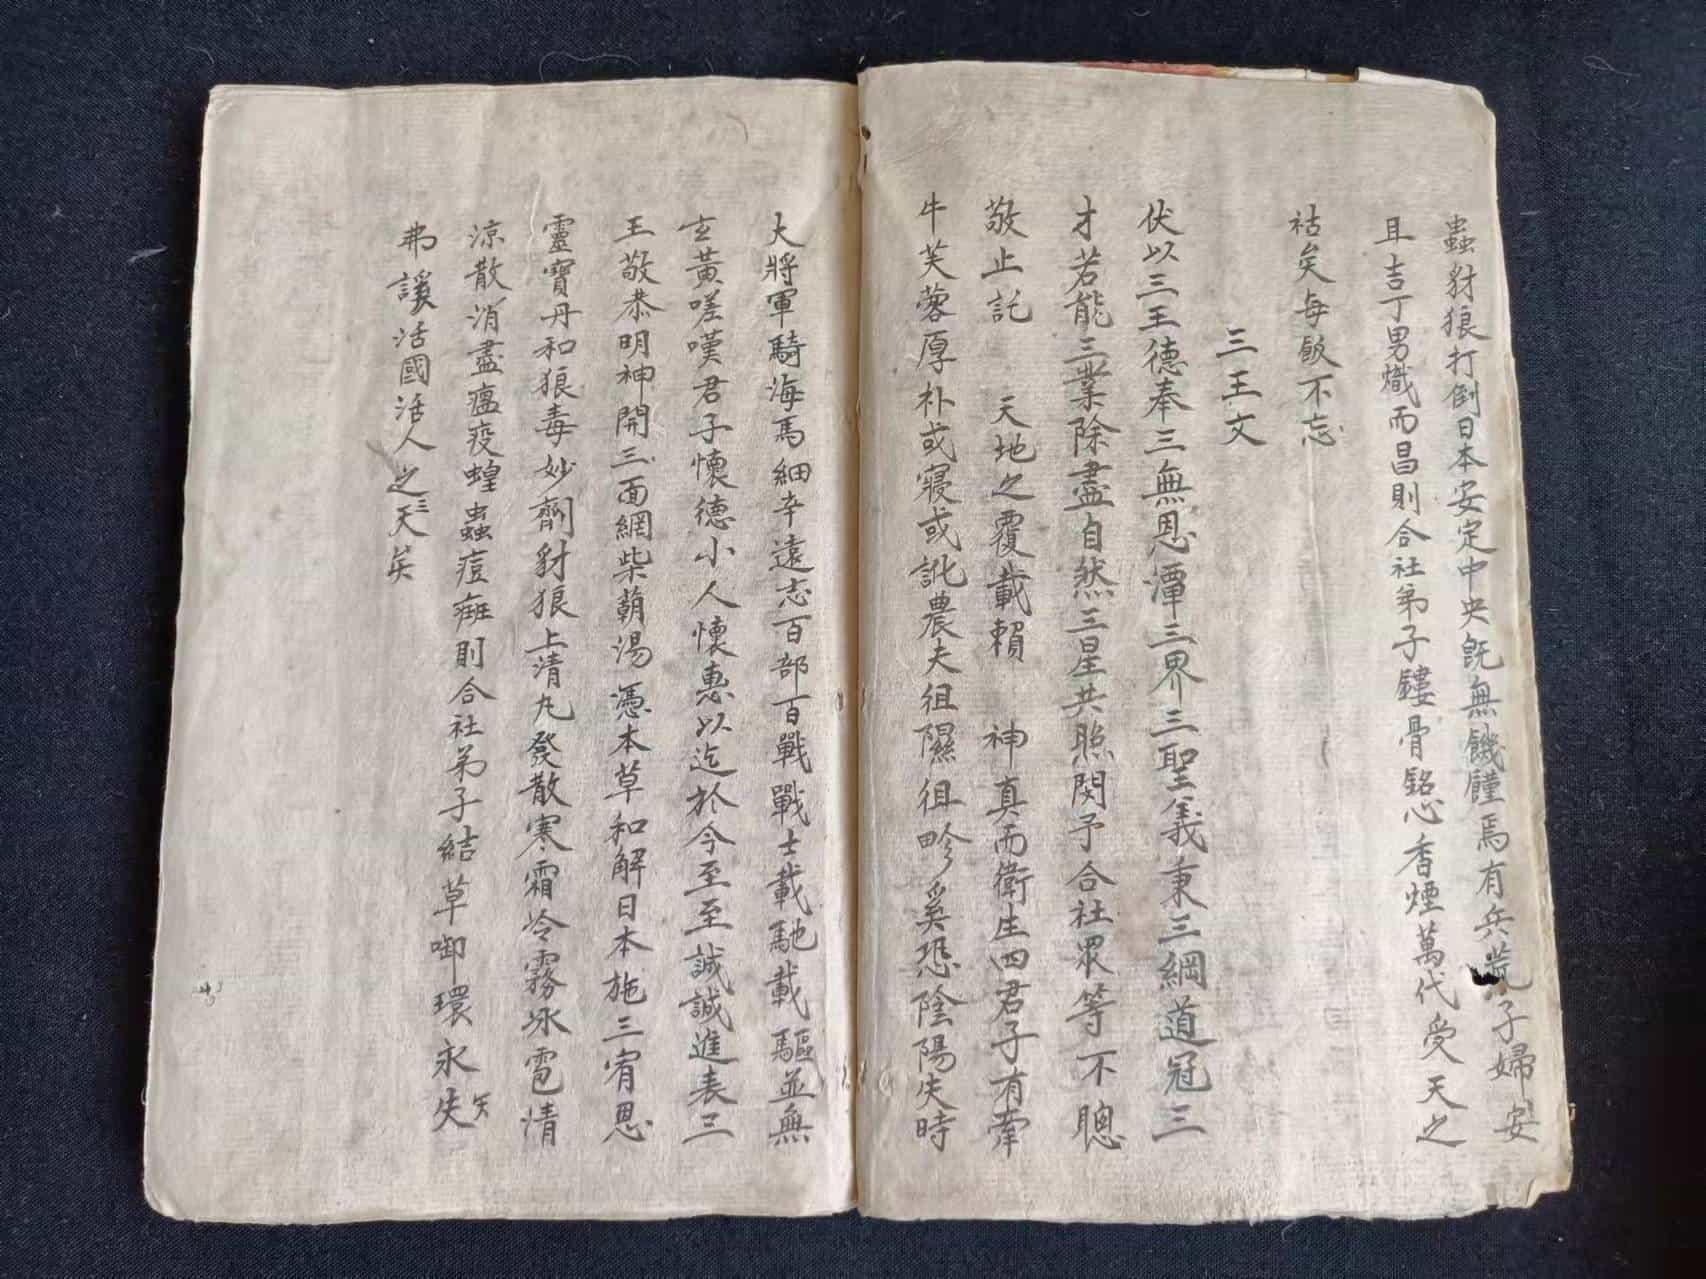 蟲豺狼打倒日本安定中央既無饑饉焉有兵荒子婦安
且吉丁男熾而昌則合社弟子鏤骨銘心香煙萬代受天之
祜矣每飯不忘
三王文
伏以三王德奉三無恩潭三界三聖義秉三綱道冠三
才若能三業除盡自然三星共照閔予合社眾等不聰
敬止託 天地之覆載賴 神真而衛生四君子有牽
牛芙蓉厚朴或寢或訛農夫徂隰徂畛奚恐陰陽失時
大將軍騎海馬細辛遠志百部百戰戰士載馳載驅並無
玄黃嗟嘆君子懷德小人懷惠以迄於今至至誠誠進表三
王敬恭明神開三面網柴萌湯憑本草和解日本施三宥恩
靈寶丹和狼毒妙劑豺狼上清丸發散寒霜冷霧冰雹清
涼散消盡瘟疫蝗蟲痘癍則合社弟子結草啣環永失矢
弗諼活國活人之三天矣